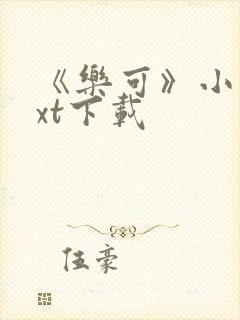 《樂可》小
xt下載
伍豪